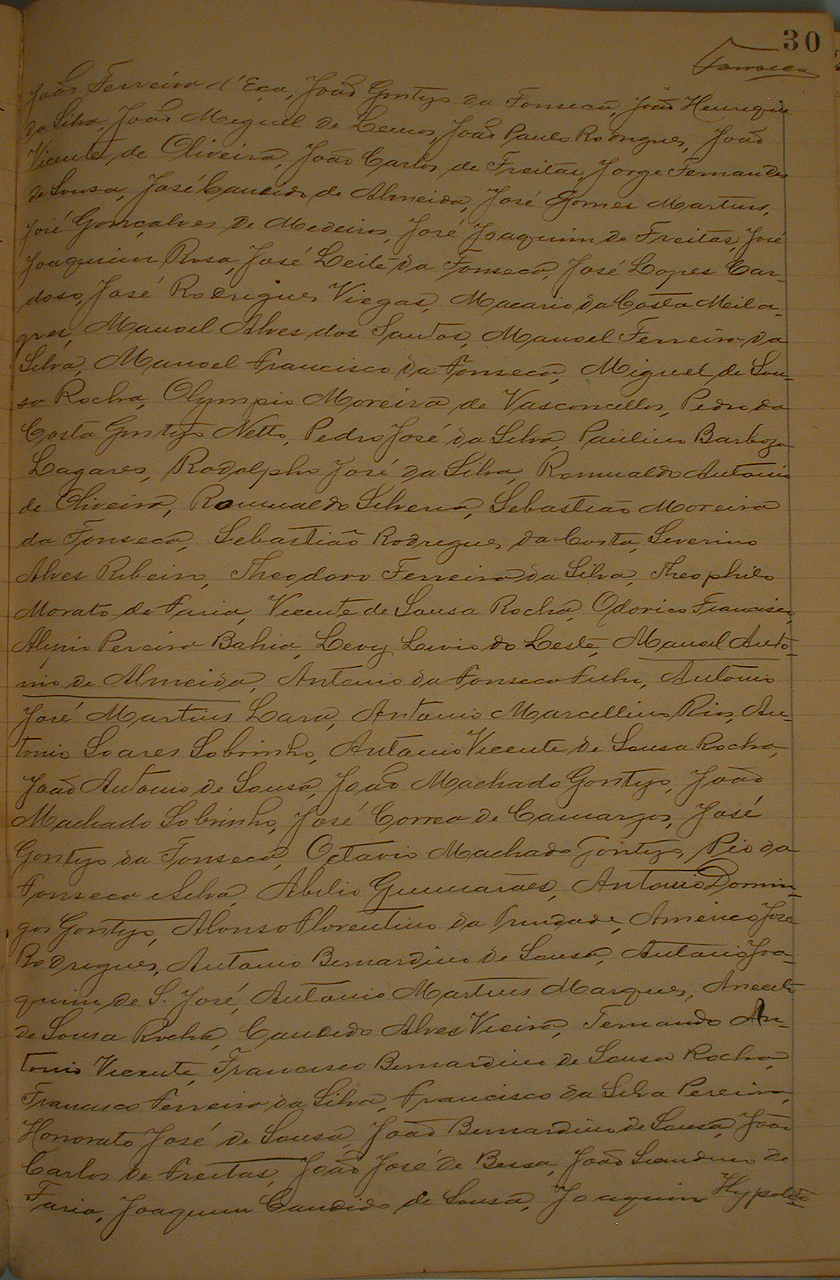 30
Fonseca
João Ferreira d'Eça, João Gontijo da Fonseca, João Henriques
da Silva, João Miguel de Lemos, João Paulo Rodrigues, João
Vicente de Oliveira, João Carlos de Freitas, Jorge Fernandes
de Sousa, José Candido de Almeida, José Gomes Martins,
José Gonçalves de Medeiros, José Joaquim de Freitas, José
Joaquim Rosa, José Leite da Fonseca, José Lopes Car-
doso, José Rodrigues Viegas, Macario da Costa Mila-
gres, Manoel Alves dos Santos, Manoel Ferreira da
Silva, Manoel Francisco da Fonseca, Miguel de Sou-
sa Rocha, Olympio Moreira de Vasconcellos, Pedro da
Costa Gontijo Netto, Pedro José da Silva, Paulino Barboza
Lagares, Rodolpho José da Silva, Romualdo Antonio
de Oliveira, Romualdo Silveira, Sebastião Moreira
da Fonseca, Sebastião Rodrigues da Costa, Severino
Alves Ribeiro, Theodoro Ferreira da Silva, Theophilo
Morato de Faria, Vicente de Sousa Rocha, Odorico Francisco,
Alypio Pereira Bahia, Levy Levis do Leste, Manoel Anto-
nio de Almeida, Antonio da Fonseca, Antonio
José Martins Lara, Antonio Marcellino Rios, An-
tonio Soares Sobrinho, Antonio Vicente de Sousa Rocha,
João Antonio de Sousa, João Machado Gontijo, João
Machado Sobrinho, José Correa de Camargos, José
Gontijo da Fonseca, Octavio Machado Gontijo, Pio da
Fonseca e Silva, Abilio Guimarães, Antonio Domin-
gos Gontijo, Alonso Florentino da Trindade, Americo José
Rodrigues, Antonio Bernardino de Sousa, Antonio Joa-
quim de S. José, Antonio Martins Marques, Aniceto
de Sousa Rocha, Candido Alves Vieira, Fernando An-
tonio Vicente, Francisco Bernardino de Sousa Rocha,
Francisco Ferreira da Silva, Francisco da Silva Pereira,
Honorato José de Sousa, João Bernardino de Sousa, João
Carlos de Freitas, João José de Bessa, João Leandro de
Faria, Joaquim Candido de Sousa, Joaquim Hypolito